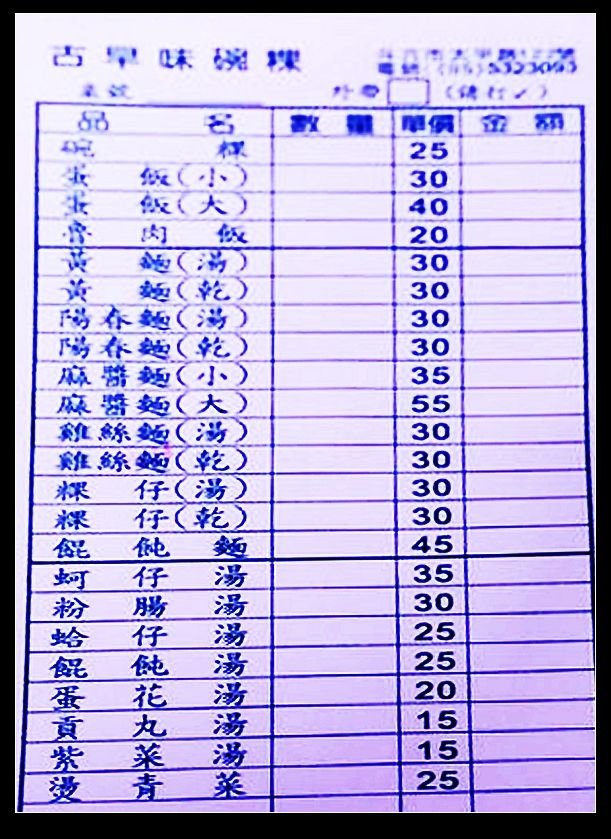 古早味碗粿
電話:(05)5323093
桌號 外帶 (請打✓)
品名 數量 單價 金額
碗粿 25
蛋飯(小) 30
蛋飯(大) 40
魯肉飯 20
黃麵(湯) 30
黃麵(乾) 30
陽春麵(湯) 30
陽春麵(乾) 30
麻醬麵(小) 35
麻醬麵(大) 55
雞絲麵(湯) 30
雞絲麵(乾) 30
粿仔(湯) 30
粿仔(乾) 30
餛飩麵 45
蚵仔湯 35
粉腸湯 30
蛤仔湯 25
餛飩湯 25
蛋花湯 20
貢丸湯 15
紫菜湯 15
燙青菜 25